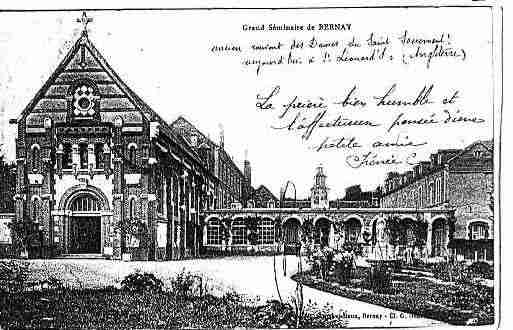 Grand Séminaire de BERNAY
ancien couvent des Dames du Saint Sacrement
aujourd'hui à St Léonard's (Angleterre)
La prière bien humble et
l'affectueuse pensée d'une
petite amie
Bernay - Cl. G.